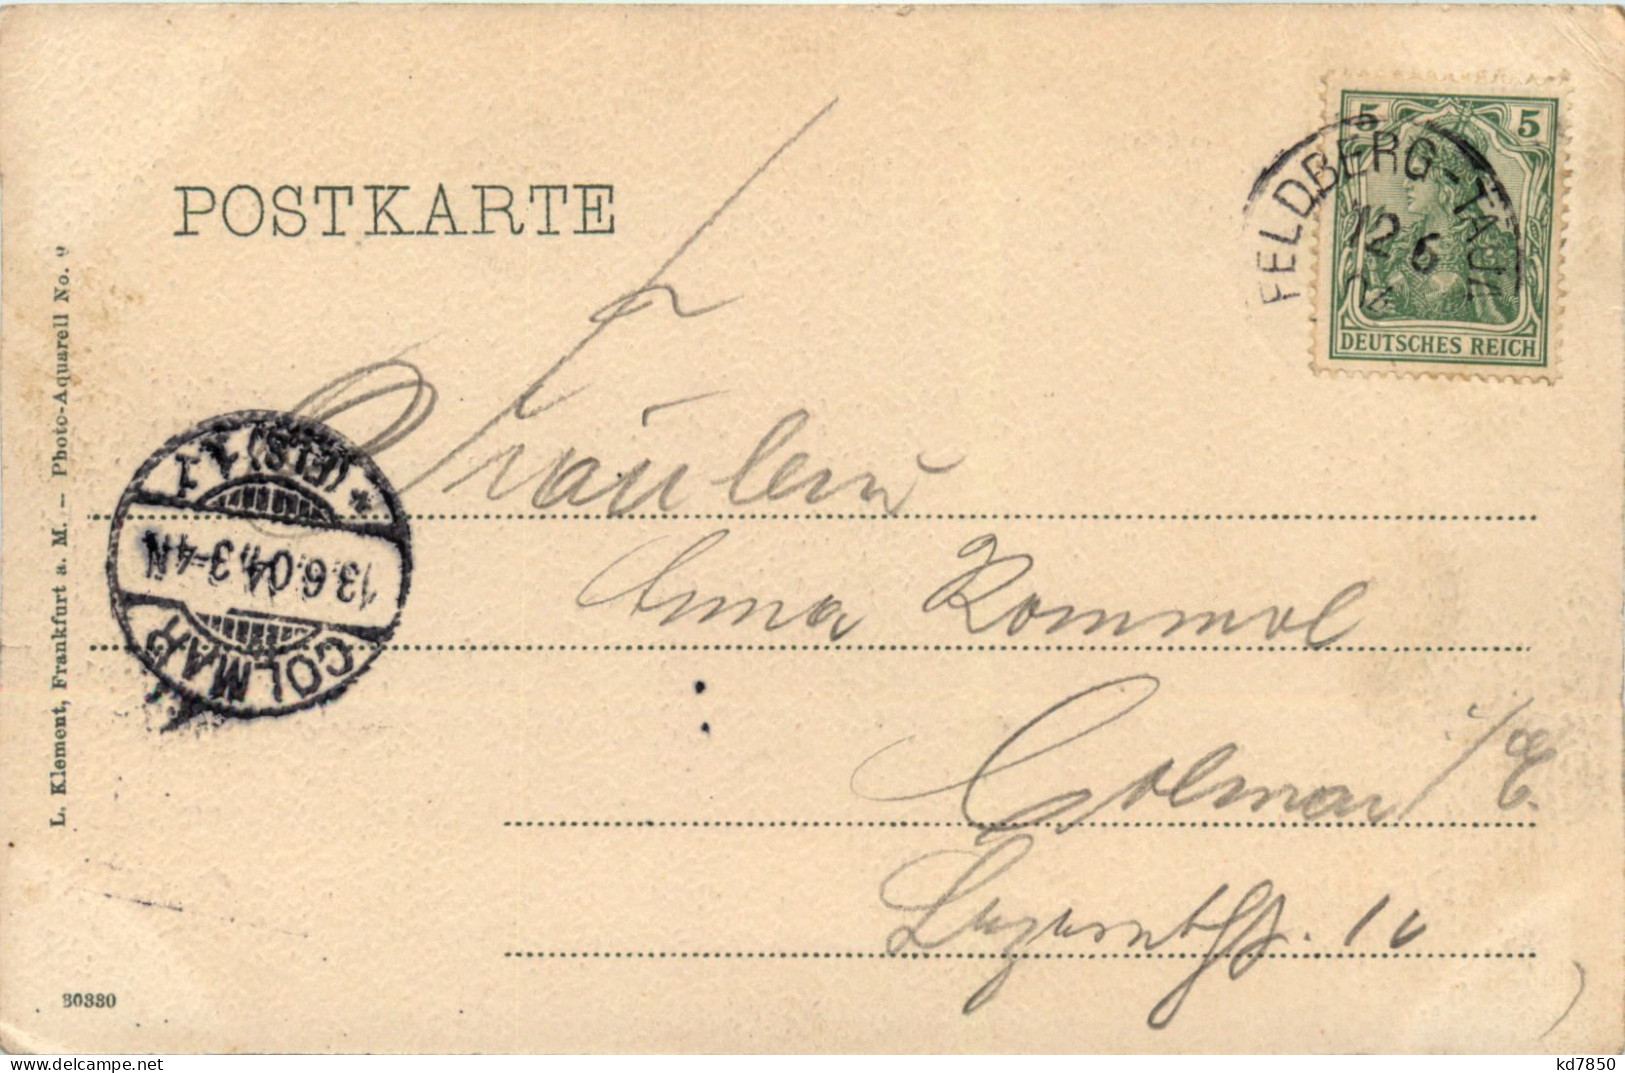 POSTKARTE
5 5
DEUTSCHES REICH
FELDBERG-TAUN
12 6
04
L. Klement, Frankfurt a. M. – Photo-Aquarell No. 9
* (ELS)
13.6.04, 3-4N
COLMAR
Fräulein
Anna Rommel
Colmar i/E.
80380
kd7850